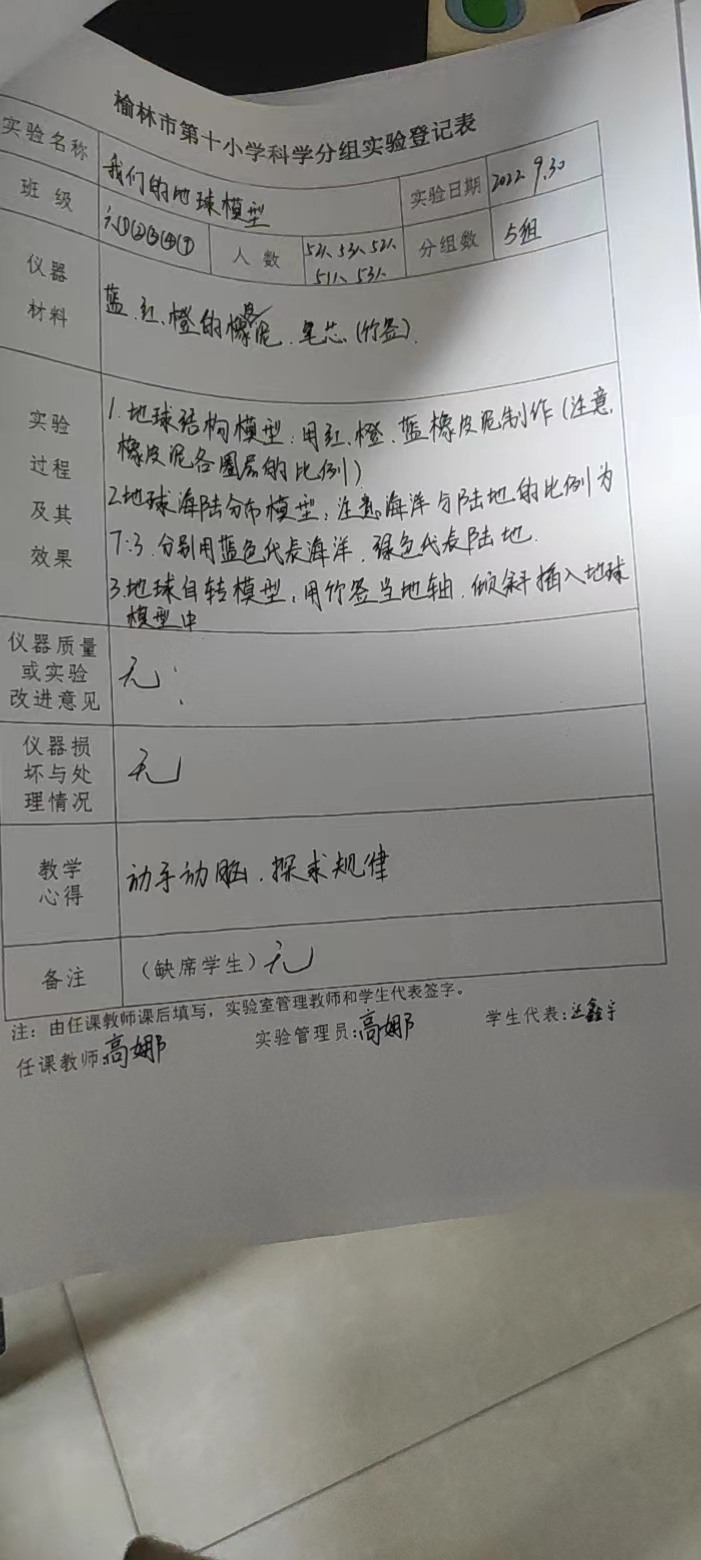 榆林市第十小学科学分组实验登记表
实验名称 我们的地球模型 实验日期 2022.9.30
班级 六①②③④⑦ 人数 52人、53人、52人、 分组数 5组
51人、53人、
仪器
材料
蓝、红、橙的橡皮泥、笔芯(竹签).
实验
过程
及其
效果
1.地球结构模型:用红、橙、蓝橡皮泥制作(注意,
橡皮泥各圈层的比例)
2.地球海陆分布模型,注意海洋与陆地的比例为
7:3.分别用蓝色代表海洋,绿色代表陆地.
3.地球自转模型,用竹签当地轴,倾斜插入地球
模型中
仪器质量
或实验
改进意见
无
仪器损
坏与处
理情况
无
教学
心得
动手动脑、探求规律
备注 (缺席学生)无
注:由任课教师课后填写,实验室管理教师和学生代表签字。
任课教师:高娜 实验管理员:高娜 学生代表: